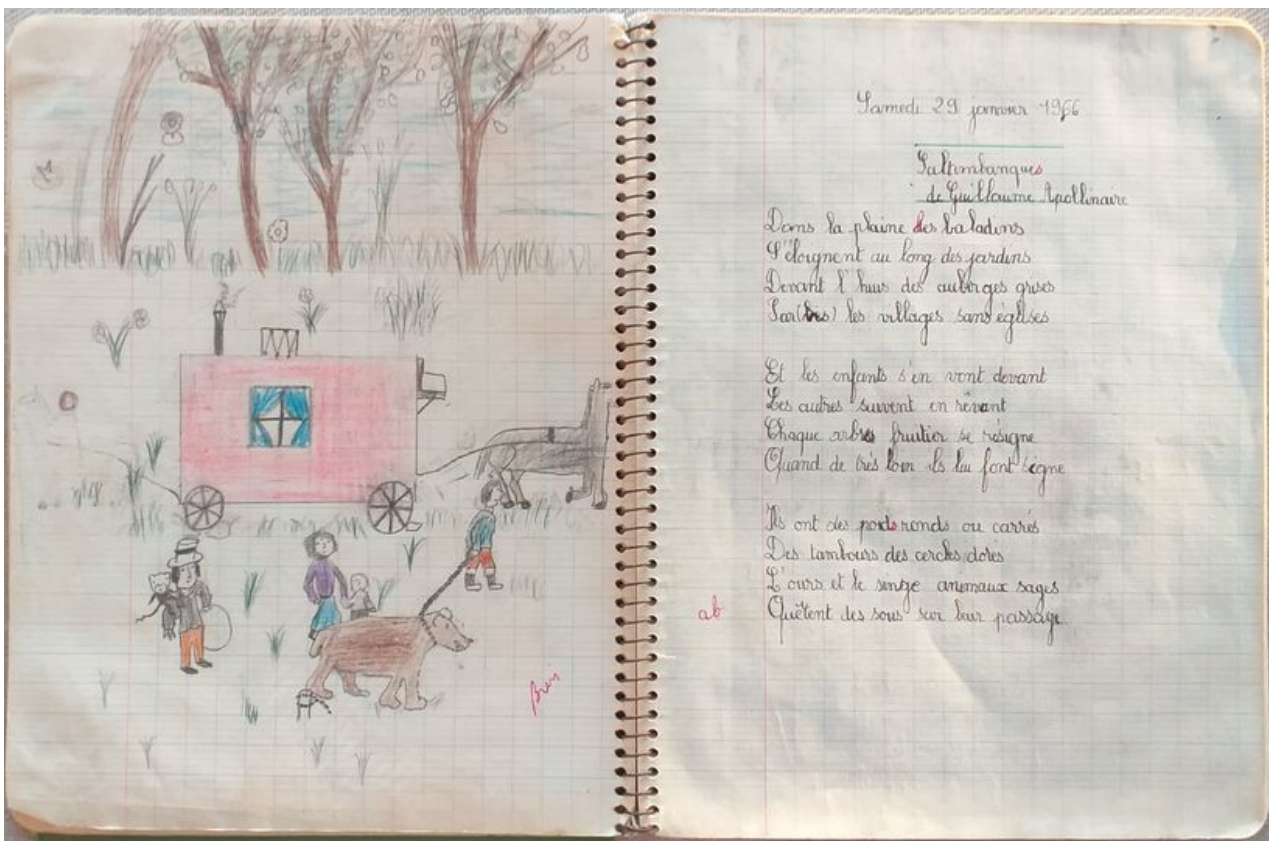 Bien
Samedi 29 janvier 1966
Saltimbanques
de Guillaume Apollinaire
Dans la plaine des baladins
S'éloignent au long des jardins
Devant l'huis des auberges grises
Par les villages sans églises
Et les enfants s'en vont devant
Les autres suivent en rêvant
Chaque arbres fruitier se résigne
Quand de très loin ils lui font signe
Ils ont des poids ronds ou carrés
Des tambours des cercles dorés
L'ours et le singe animaux sages
ab Quêtent des sous sur leur passage